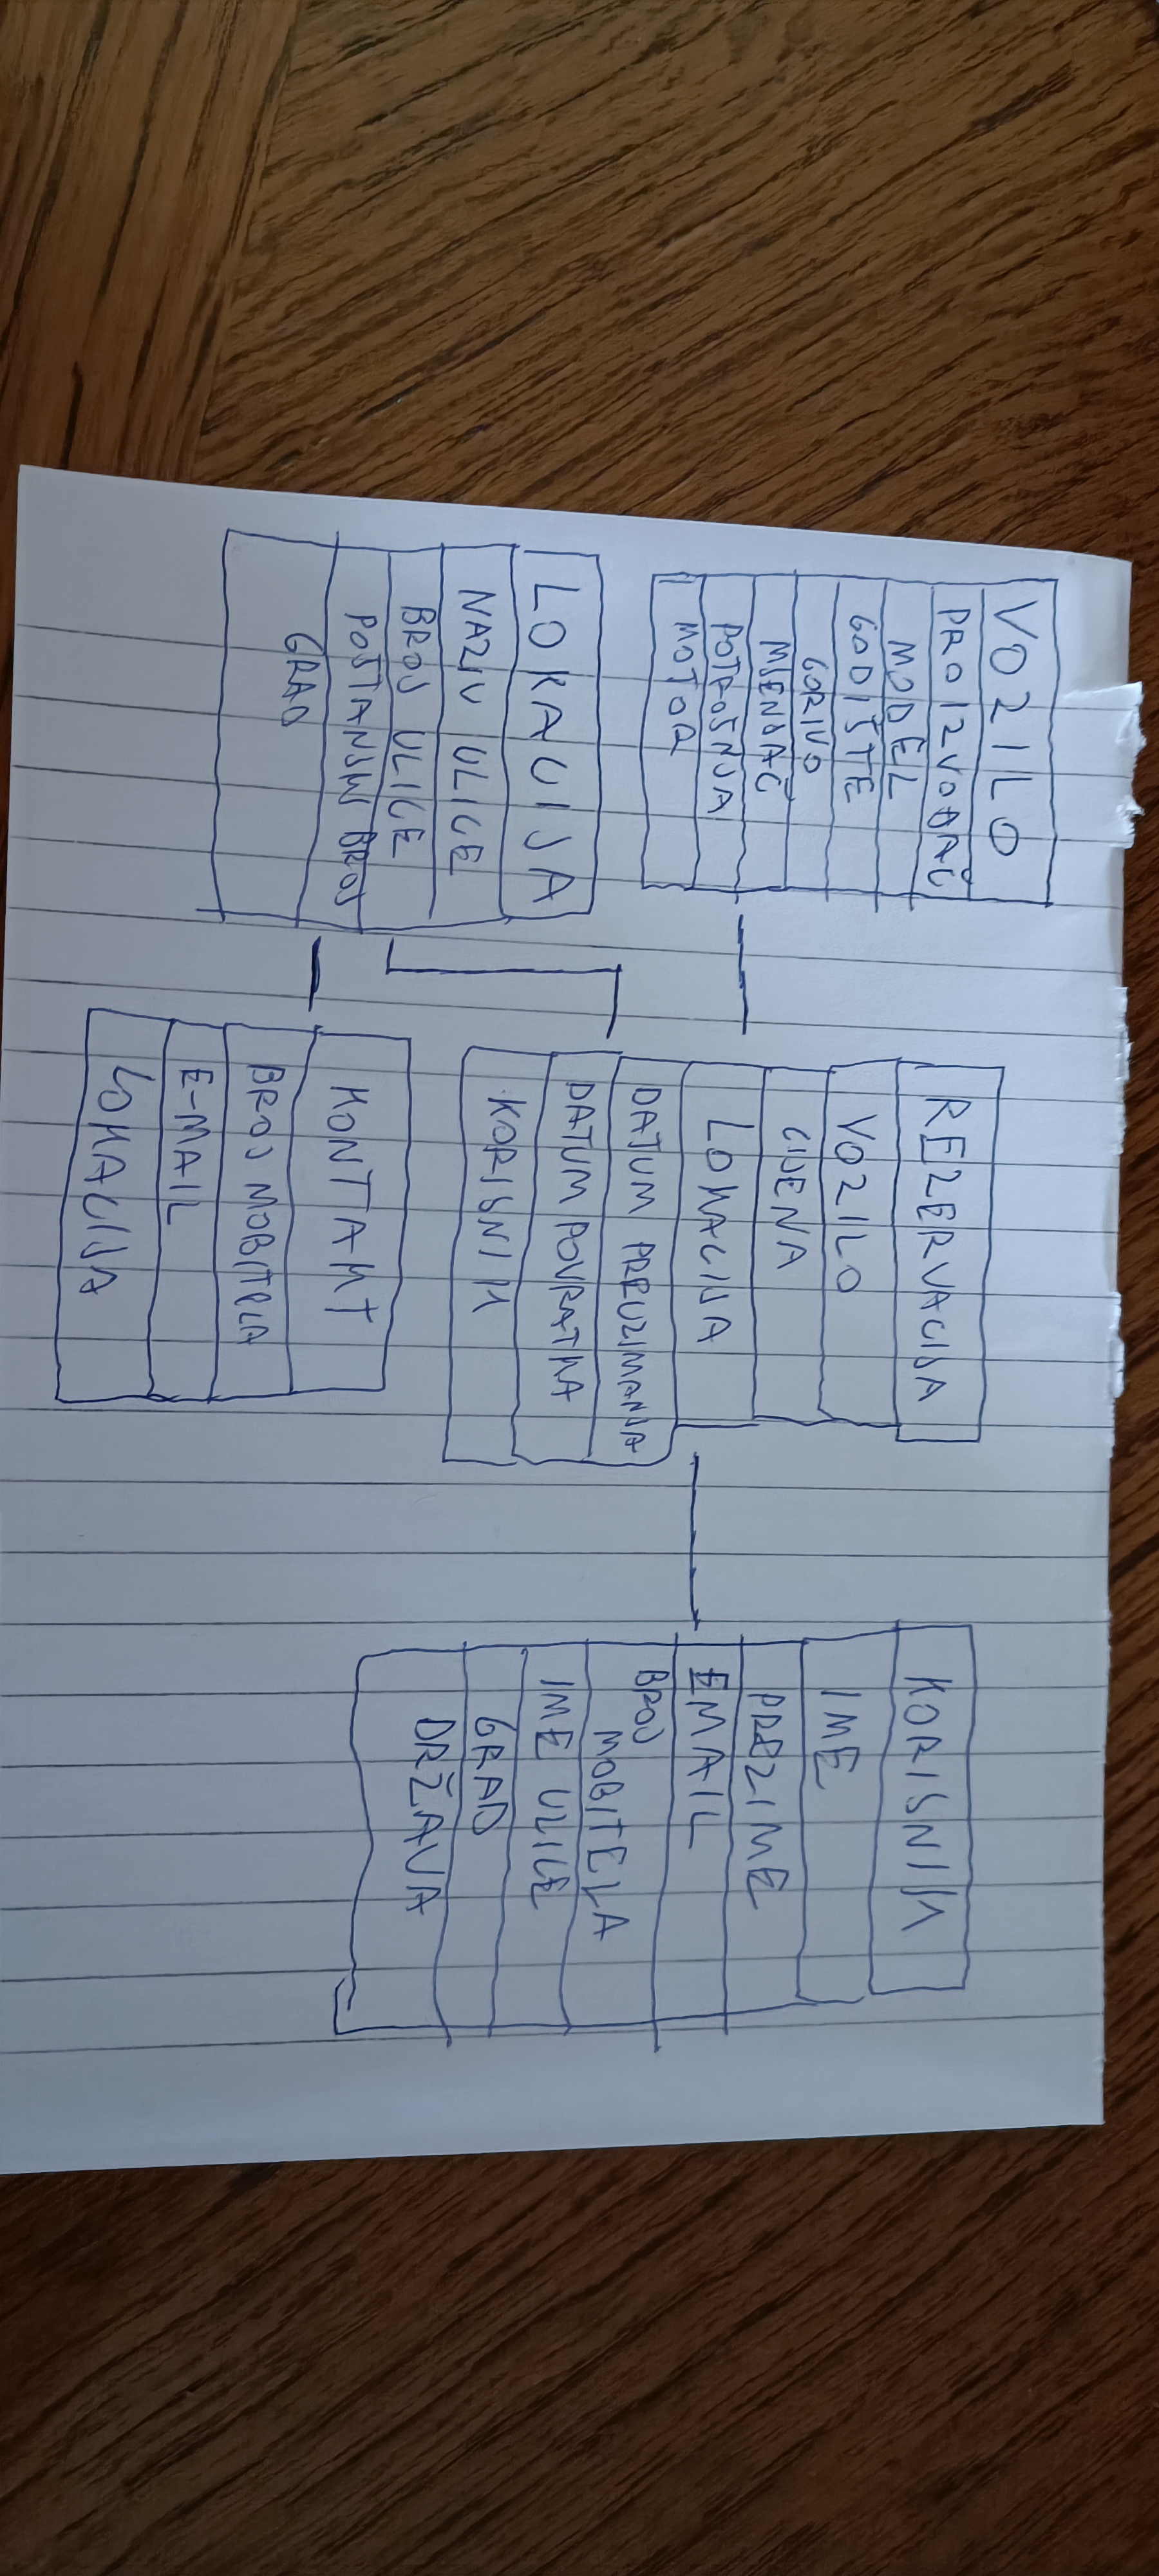 VOZILO
PROIZVOĐAČ
MODEL
GODIŠTE
GORIVO
MJENJAČ
POTROŠNJA
MOTOR
LOKACIJA
NAZIV ULICE
BROJ ULICE
POŠTANSKI BROJ
GRAD
REZERVACIJA
VOZILO
CIJENA
LOKACIJA
DATUM PREUZIMANJA
DATUM POVRATKA
KORISNIK
KONTAKT
BROJ MOBITELA
E-MAIL
LOKACIJA
KORISNIK
IME
PREZIME
EMAIL
BROJ
MOBITELA
IME ULICE
GRAD
DRŽAVA